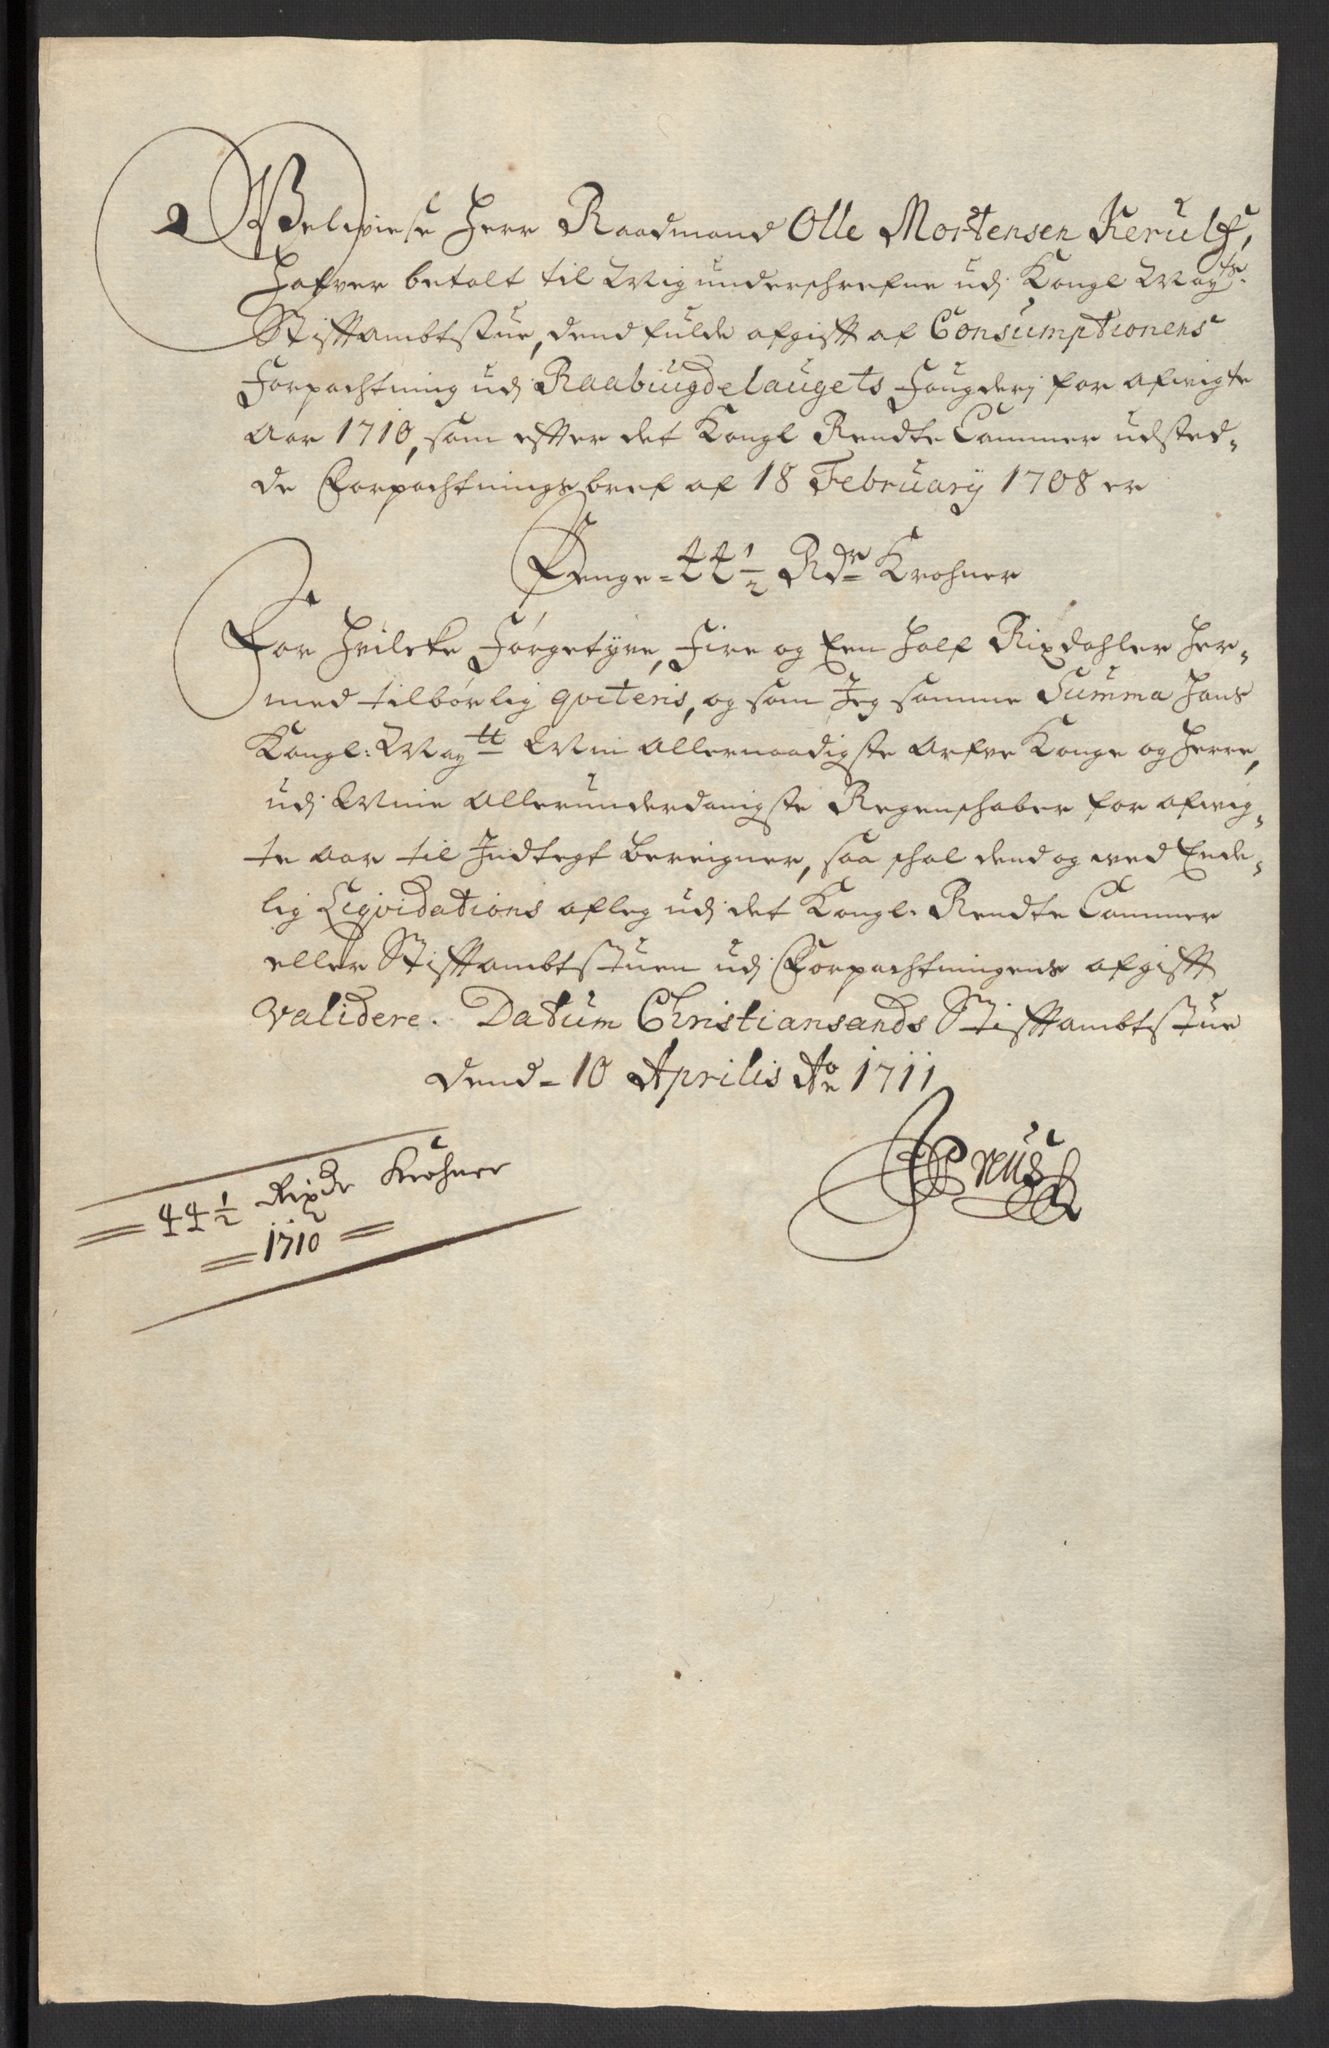 Velwiese Herr Raadmand Olle Mortensen Kerulf,
Hafver betalt til Mig underschrefne udj Kongl Mayts
Stifftambtstue, dend fulde afgifft af Consumptionens
Forpachtning udj Raabÿugdelaugets Fougderj for afvigte
Aar 1710, som effter det Kongl Rendte Cammer udsted-
de Forpachtnings bref af 18 Februarÿ 1708 er
Penge = 44 1/2 Rdr Krohner
For Hvilcke Förgetÿve, Fire og Een half Rixdahler her-
med tilbörlig qviteris, og som Jeg samme Summa Hans
Kongl: Maytt Min Allernaadigste Arfve Konge og Herre,
udj Mine Allerunderdanigste Regenschaber for afvig-
te Aar til Indtegt bereigner, saa schal dend og ved Ende-
lig Liqvidations afleg udj det Kongl. Rendte Cammer
eller Stifftambtstuen udj Forpachtningens afgifft
validere. Datum Christiansands Stifftambtstue
Dend = 10 Aprilis Ao 1711
Preus
44 1/2 Rixdr Krohner
1710